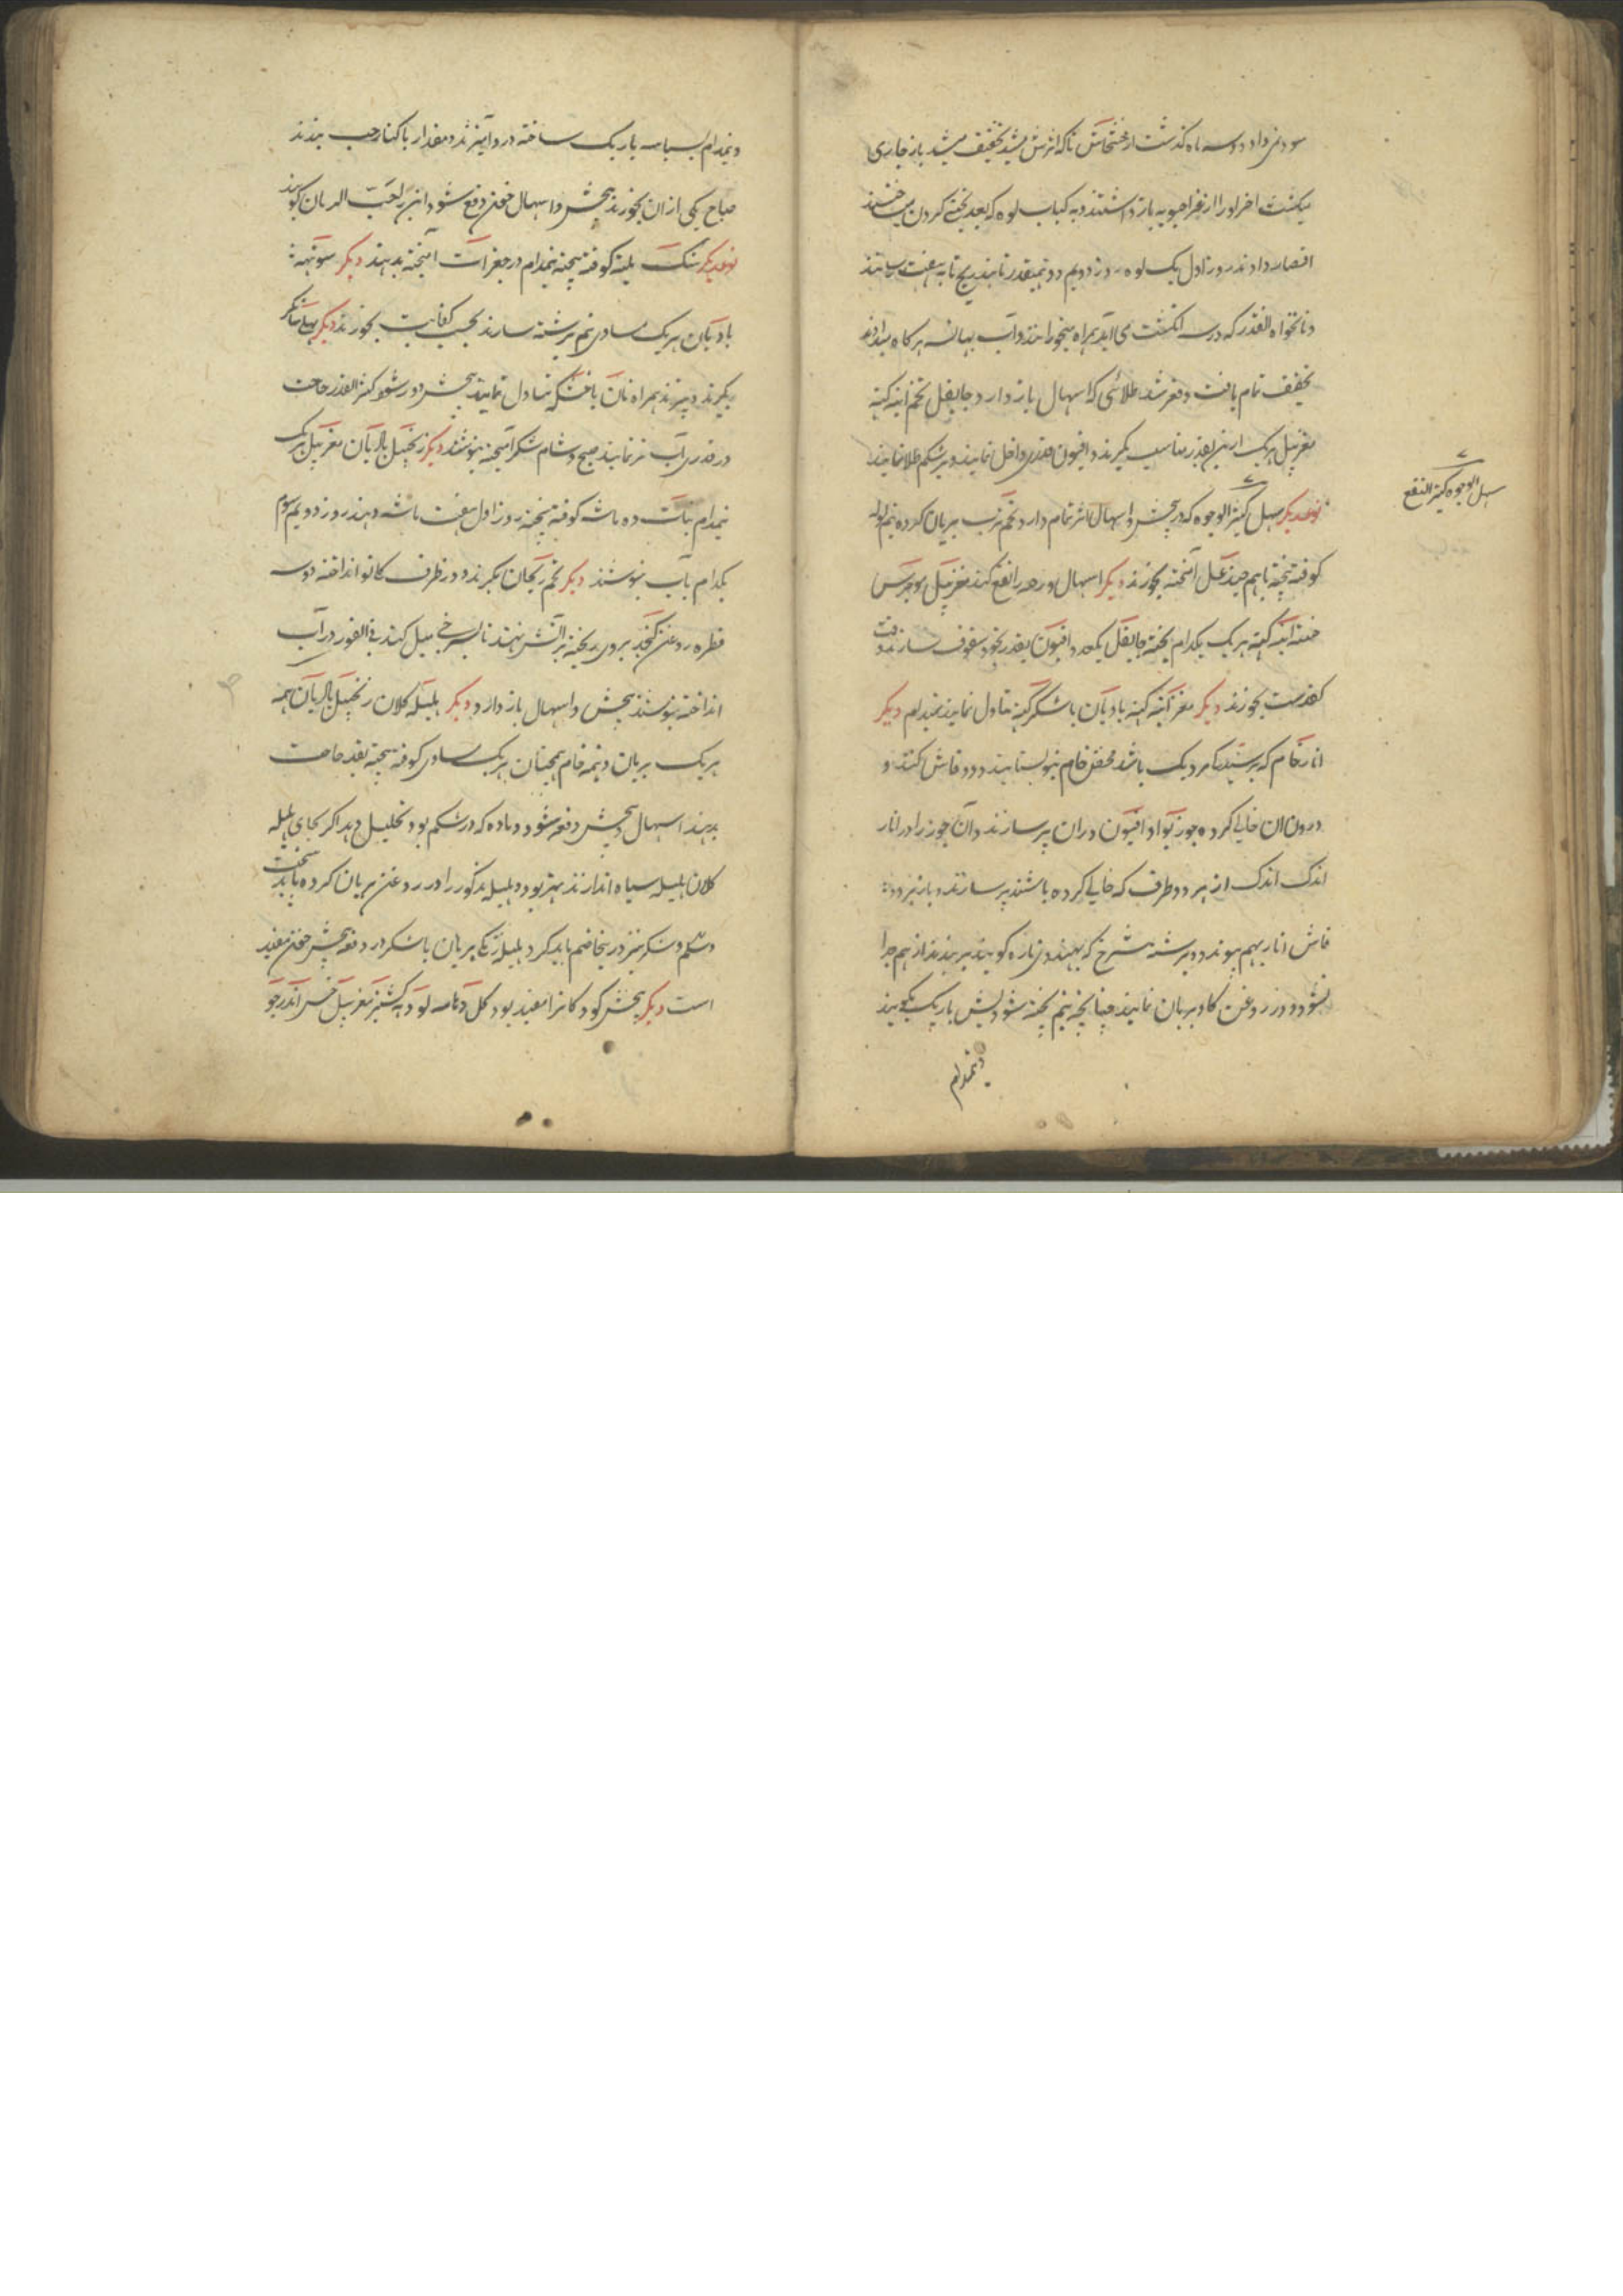 سودی نداد دو سه ماه گذشت از خشخاش تا که اثرش میشد تخفیف میشد باز جاری
میگشت آخر او را از غذا حبوبه باز داشتند و به کباب لوه که بعد یخنی کردن
اقتصار دادند روز اول یک لوه روز دویم دو بهمینقدر تا بتدریج تا به هفت رسانند
و نانخواه آنقدر که در سه انگشت می آید همراه میخورانند و آب هرگاه میدادند
تخفیف تمام یافت و دفع شد طلائی که اسهال باز دارد جایفل تخم انبه کهنه
مغز بیل هر یک ازین بقدر مناسب بگیرند و افیون قدری داخل نمایند و بر شکم طلا نمایند
نوعدیگر سهل کثیر الوجوه که در پیچش و اسهال اثر تمام دارد تخم ترب بریان کرده نیم توله
سهل الوجوه کثیر النفع
کوفته بیخته با هم چند عسل آمیخته بخورند دیگر اسهال و زحیر را نفع کند مغز بیل موچرس
خسته انبه کهنه هر یک یکدام پخته جایفل یکعدد افیون بقدر نخود سفوف سازند وقت
بخورند دیگر مغز انبه کهنه بادیان با شکر کهنه تناول نمایند نیمدام دیگر
انار خام که باشد محض خام نبود بستانند و دو قاش کنند و
درون آن خالی کرده جوز بوا و افیون در آن پر سازند و آن جوز را در انار
اندک اندک از هر دو طرف که خالی کرده باشند پر سازند و باز هر دو
قاش انار بهم پیوندد و برشته سرخ که بهندوی ناره گویند بر بندند تا از هم جدا
نشود و در روغن گاو بریان نمایند چنانچه نیم پخته شود پس باریک بکوبند
و نیمدام
و نیمدام بسباسه باریک ساخته در و آمیزند و مقدار با کنار حب بندند
صباح یکی از آن بخورند پیچش و اسهال خون دفع شود این را حب الرمان گویند
نوعدیگر سنگ کوفته بیخته نیمدام در جغرات آمیخته بدهند دیگر سونتهه
بادیان هر یک مساوی نیم برشته سازند بحسب کفایت بخورند دیگر
بگیرند و بپزند همراه نان یا خشکه تناول نمایند پیچش دور شود کشنیز آنقدر حاجت
در قدری آب تر نمایند صبح و شام شکر آمیخته بنوشند دیگر زنجبیل بادیان مغز بیل هر یک
نیمدام نبات ده ماشه کوفته بیخته روز اول هفت ماشه دهند روز دویم سوم
یکدام بآب بنوشند دیگر تخم ریحان بگیرند و در ظرف انداخته دو سه
قطره روغن کنجد بروی ریخته بر آتش نهند تا بسرخی میل کند فی الفور در آب
انداخته بنوشند پیچش و اسهال باز دارد دیگر هلیله کلان زنجبیل بادیان همه
هر یک بریان و نیمه خام همچنان هر یک مساوی کوفته بیخته بقدر حاجت
بدهند اسهال و پیچش دفع شود و ماده که در شکم بود تحلیل دهد اگر بجای هلیله
کلان هلیله سیاه اندازند بهتر بود و هلیله مذکور را در روغن بریان کرده باید
و شکر نیز درینجا ضم باید کرد هلیله زنگی بریان با شکر در دفع پیچش خون مفید
است دیگر پیچش کودکانرا مفید بود گل دهاوه لوده کشنیز مغز بیل خس اندرجو